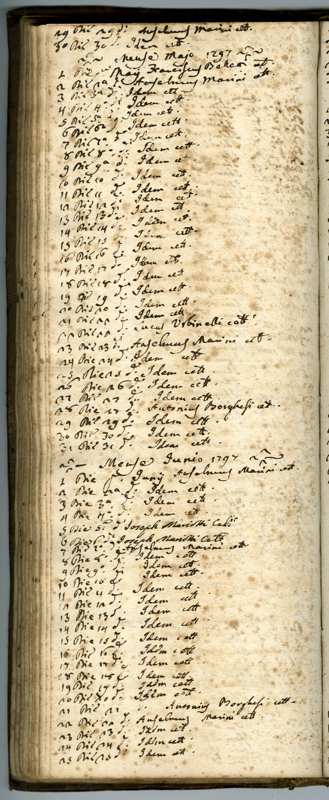 29 Die 29 d. Anselmus Marini cett.
30 Die 30 d. Idem cett
Mense Majo 1797
1 Die Franciscus cett
2 Die 2a d. Anselmus Marini cett
3 Die 3a d. Idem cett
4 Die 4a d. Idem cett
5 Die 5a d. Idem cett
6 Die 6a d. Idem cett
7 Die 7a d. Idem cett
8 Die 8a d. Idem cett
9 Die 9a d. Idem c
10 Die 10 d. Idem cett
11 Die 11 d. Idem cett
12 Die 12 d. Idem cett
13 Die 13 d. Idem cett
14 Die 14 d. Idem cett
15 Die 15 d. Idem cett
16 Die 16 d. Idem cett
17 Die 17 d. Idem cett
18 Die 18 d. Idem cett
19 Die 19 d. Idem cett
20 Die 20 d. Idem cett
21 Die 21 d. Idem cett
22 Die 22 d. Lucas Urbinelli cett
23 Die 23 d. Anselmus Marini cett
24 Die 24 d. Idem cett
25 Die 25 d. Idem cett
26 Die 26 d. Idem cett
27 Die 27 d. Idem cett
28 Die 27 d. Antonius Borghesi cett
29 Die 29 d. Idem cett
30 Die 30 d. Idem cett
31 Die 31 d. Idem cett
Mense Junio 1797
1 Die Junij Anselmus Marini cett
2 Die 2a d. Idem cett
3 Die 3a d. Idem cett
4 Die 4a d. Idem cett
5 Die 5a d. Joseph Mariotti
6 Die 6a d. Joseph Mariotti cett
7 Die 7a d. Anselmus Marini cett
8 Die 8a d. Idem cett
9 Die 9a d. Idem cett
10 Die 10 d. Idem cett
11 Die 11 d. Idem cett
12 Die 12 d. Idem cett
13 Die 13 d. Idem cett
14 Die 14 d. Idem cett
15 Die 15 d. Idem cett
16 Die 16 d. Idem cett
17 Die 17 d. Idem cett
18 Die 18 d. Idem cett
19 Die 19 d. Idem cett
20 Die 20 d. Idem cett
21 Die 21 Antonius Borghesi cett
22 Die 22 d. Anselmus Marini cett
23 Die 23 d. Idem cett
24 Die 24 d. Idem cett
25 Die 25 d. Idem cett